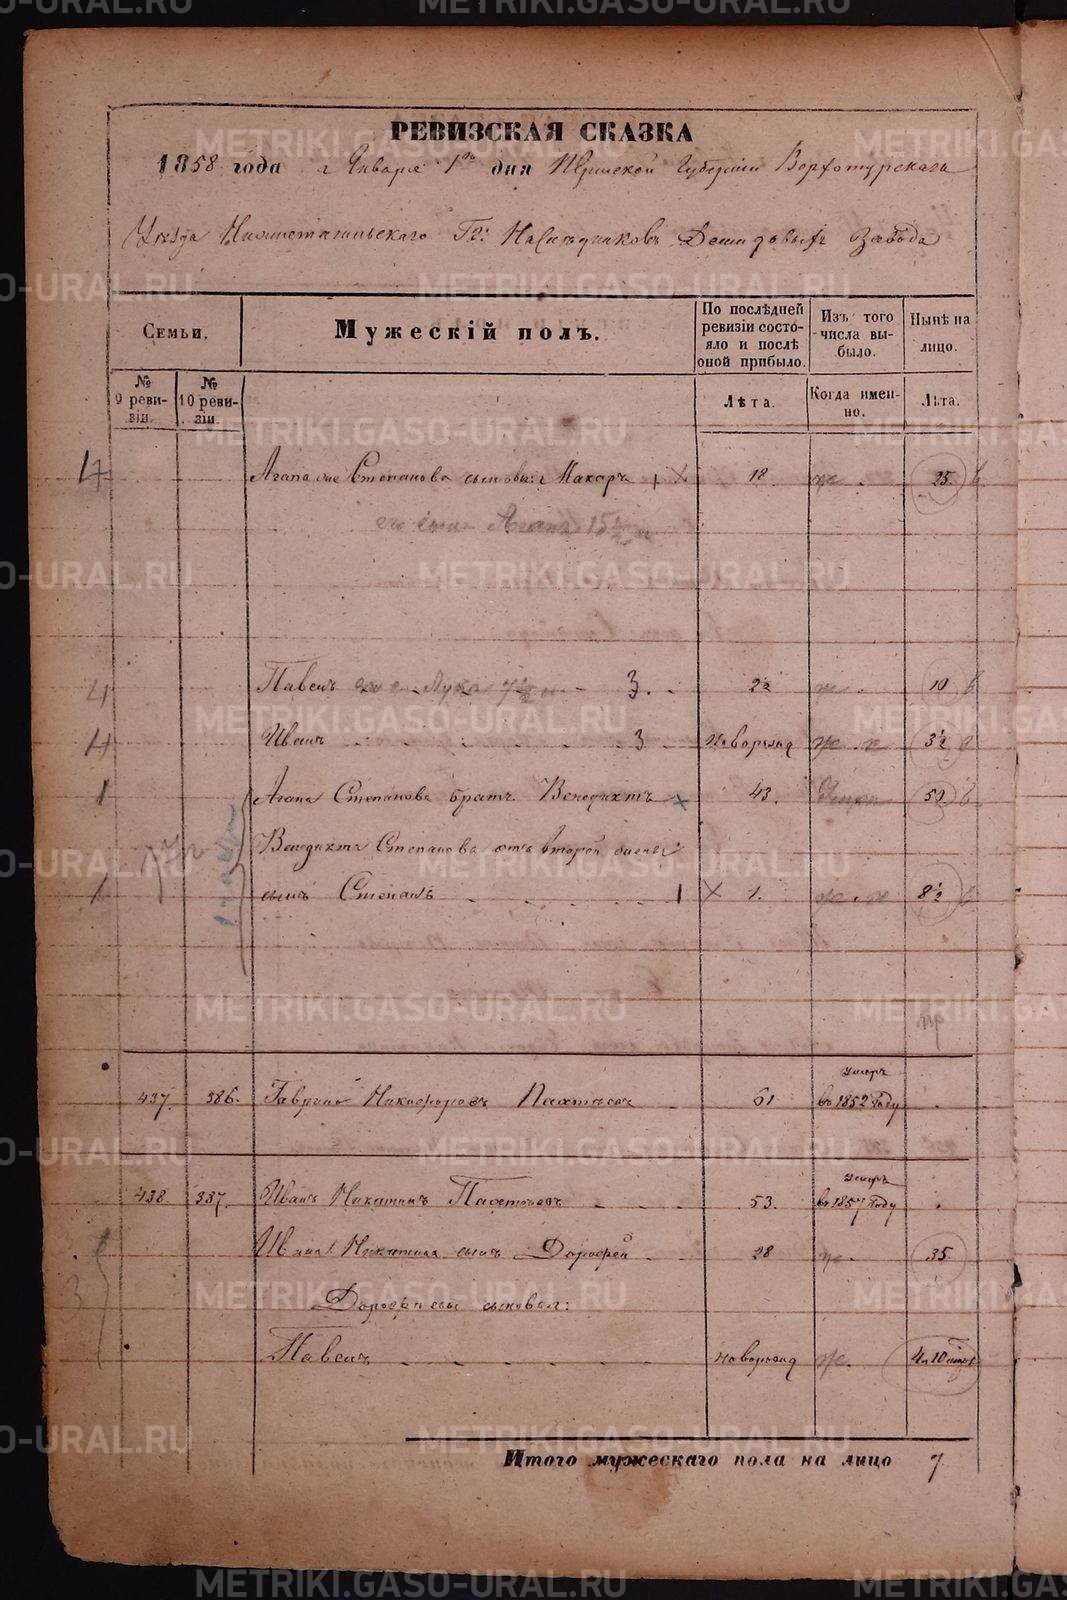 РЕВИЗСКАЯ СКАЗКА
1858 года Января 1го дня Пермской Губернии Верхотурскаго
Уезда Нижнетагильскаго Гг: Наследниковъ Демидовыхъ Завода
Семьи.
Мужескій полъ.
По послѣдней ревизіи состояло и послѣ оной прибыло.
Изъ того числа выбыло.
Нынѣ на лицо.
№ 9 ревизіи.
№ 10 ревизіи.
Лѣта.
Когда именно.
Лѣта.
Агапа Степанова сыновья: Макаръ 18 25
его сынъ Агапъ 15½
Павелъ Лука 7½ 3. 2½ 10
Иванъ 3 новорожд 3½
1 Агапа Степанова братъ Венедиктъ 43. 50
Венедикта Степанова отъ второй жены
1 сынъ Степанъ 1 1. 8½
437. 386. Гаврило Никифоровъ Пахтѣевъ 61 умеръ въ 1852 году
438 387. Иванъ Никитинъ Пахтѣевъ 53. умеръ въ 1857 году
Ивана Никитина сынъ Дорофей 28 35.
Дорофеевы сыновья:
Павелъ новорожд
Итого мужескаго пола на лицо 7
METRIKI.GASO-URAL.RU